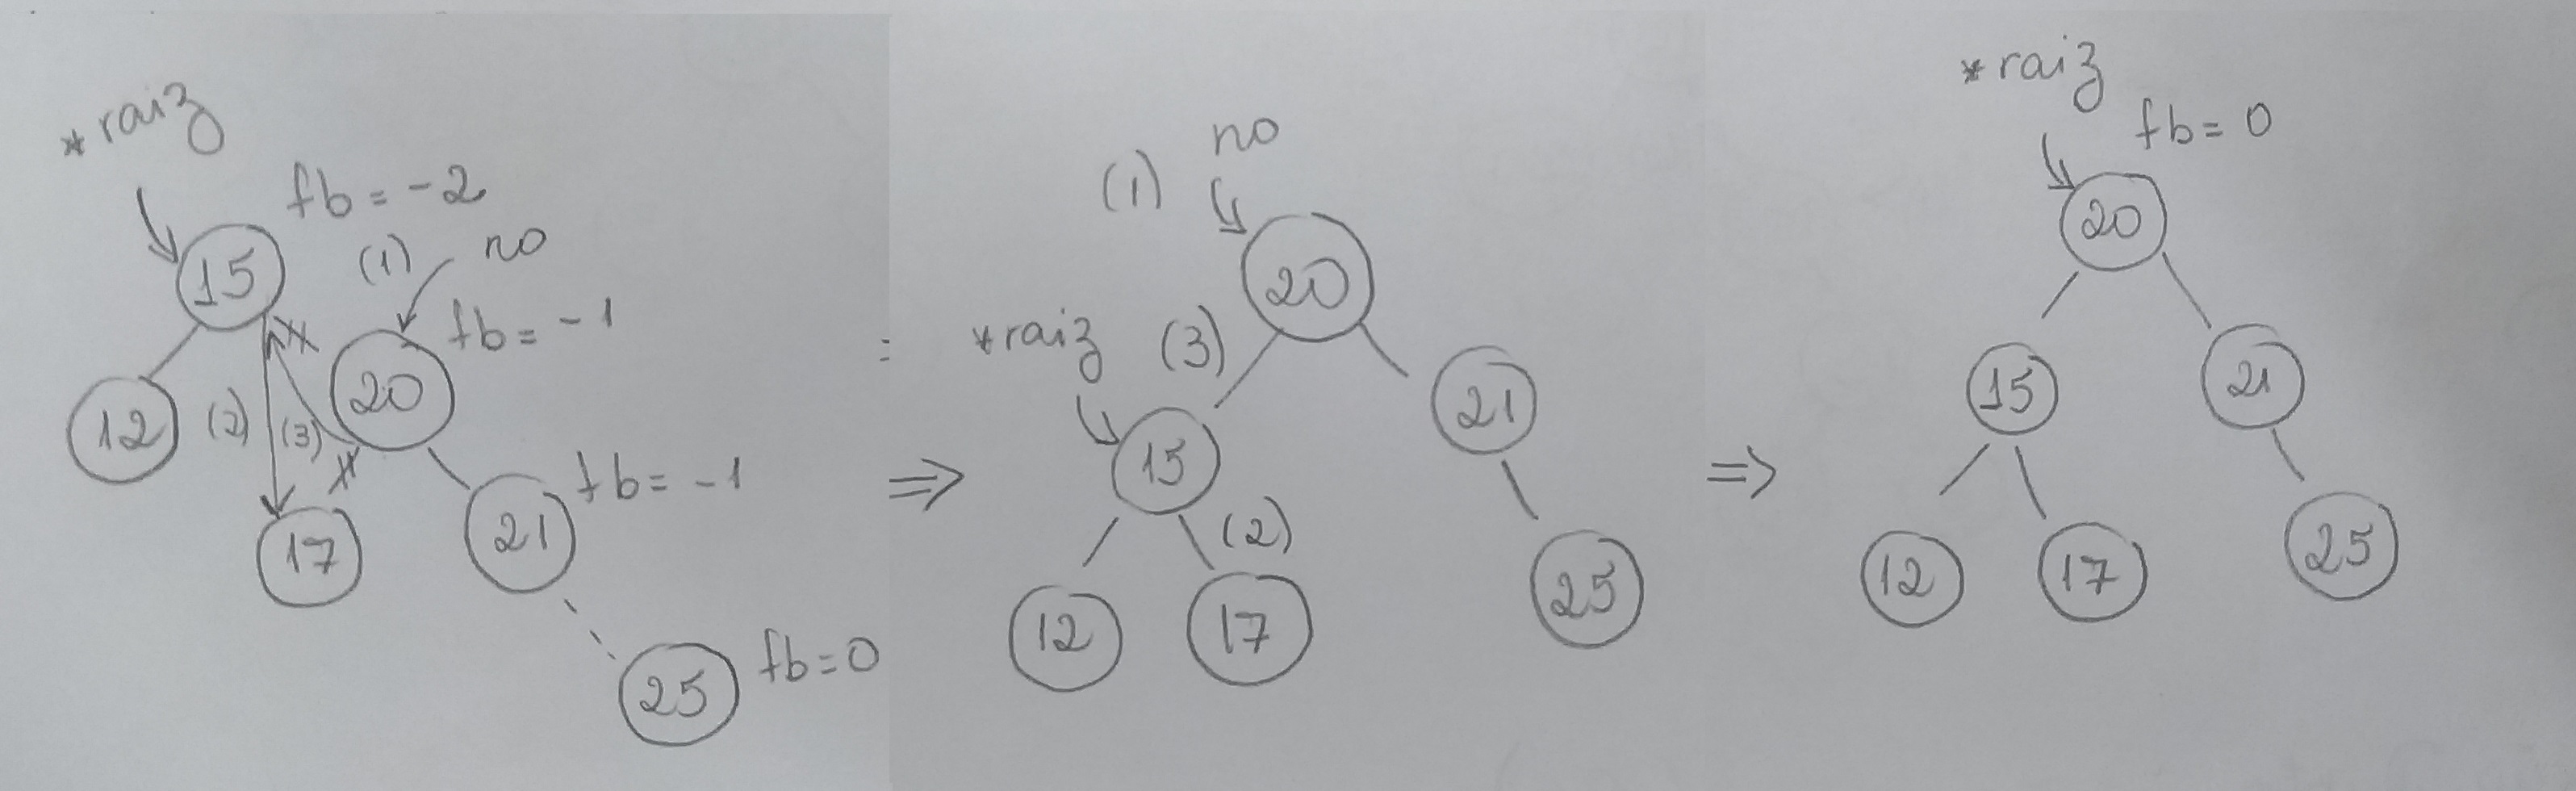 *raiz
fb = -2
15
(1) no
fb = -1
20
12
(2)
(3)
17
21
fb = -1
25
fb = 0
=>
no
(1)
20
*raiz
(3)
15
21
(2)
12
17
25
=>
*raiz
fb = 0
20
15
21
12
17
25